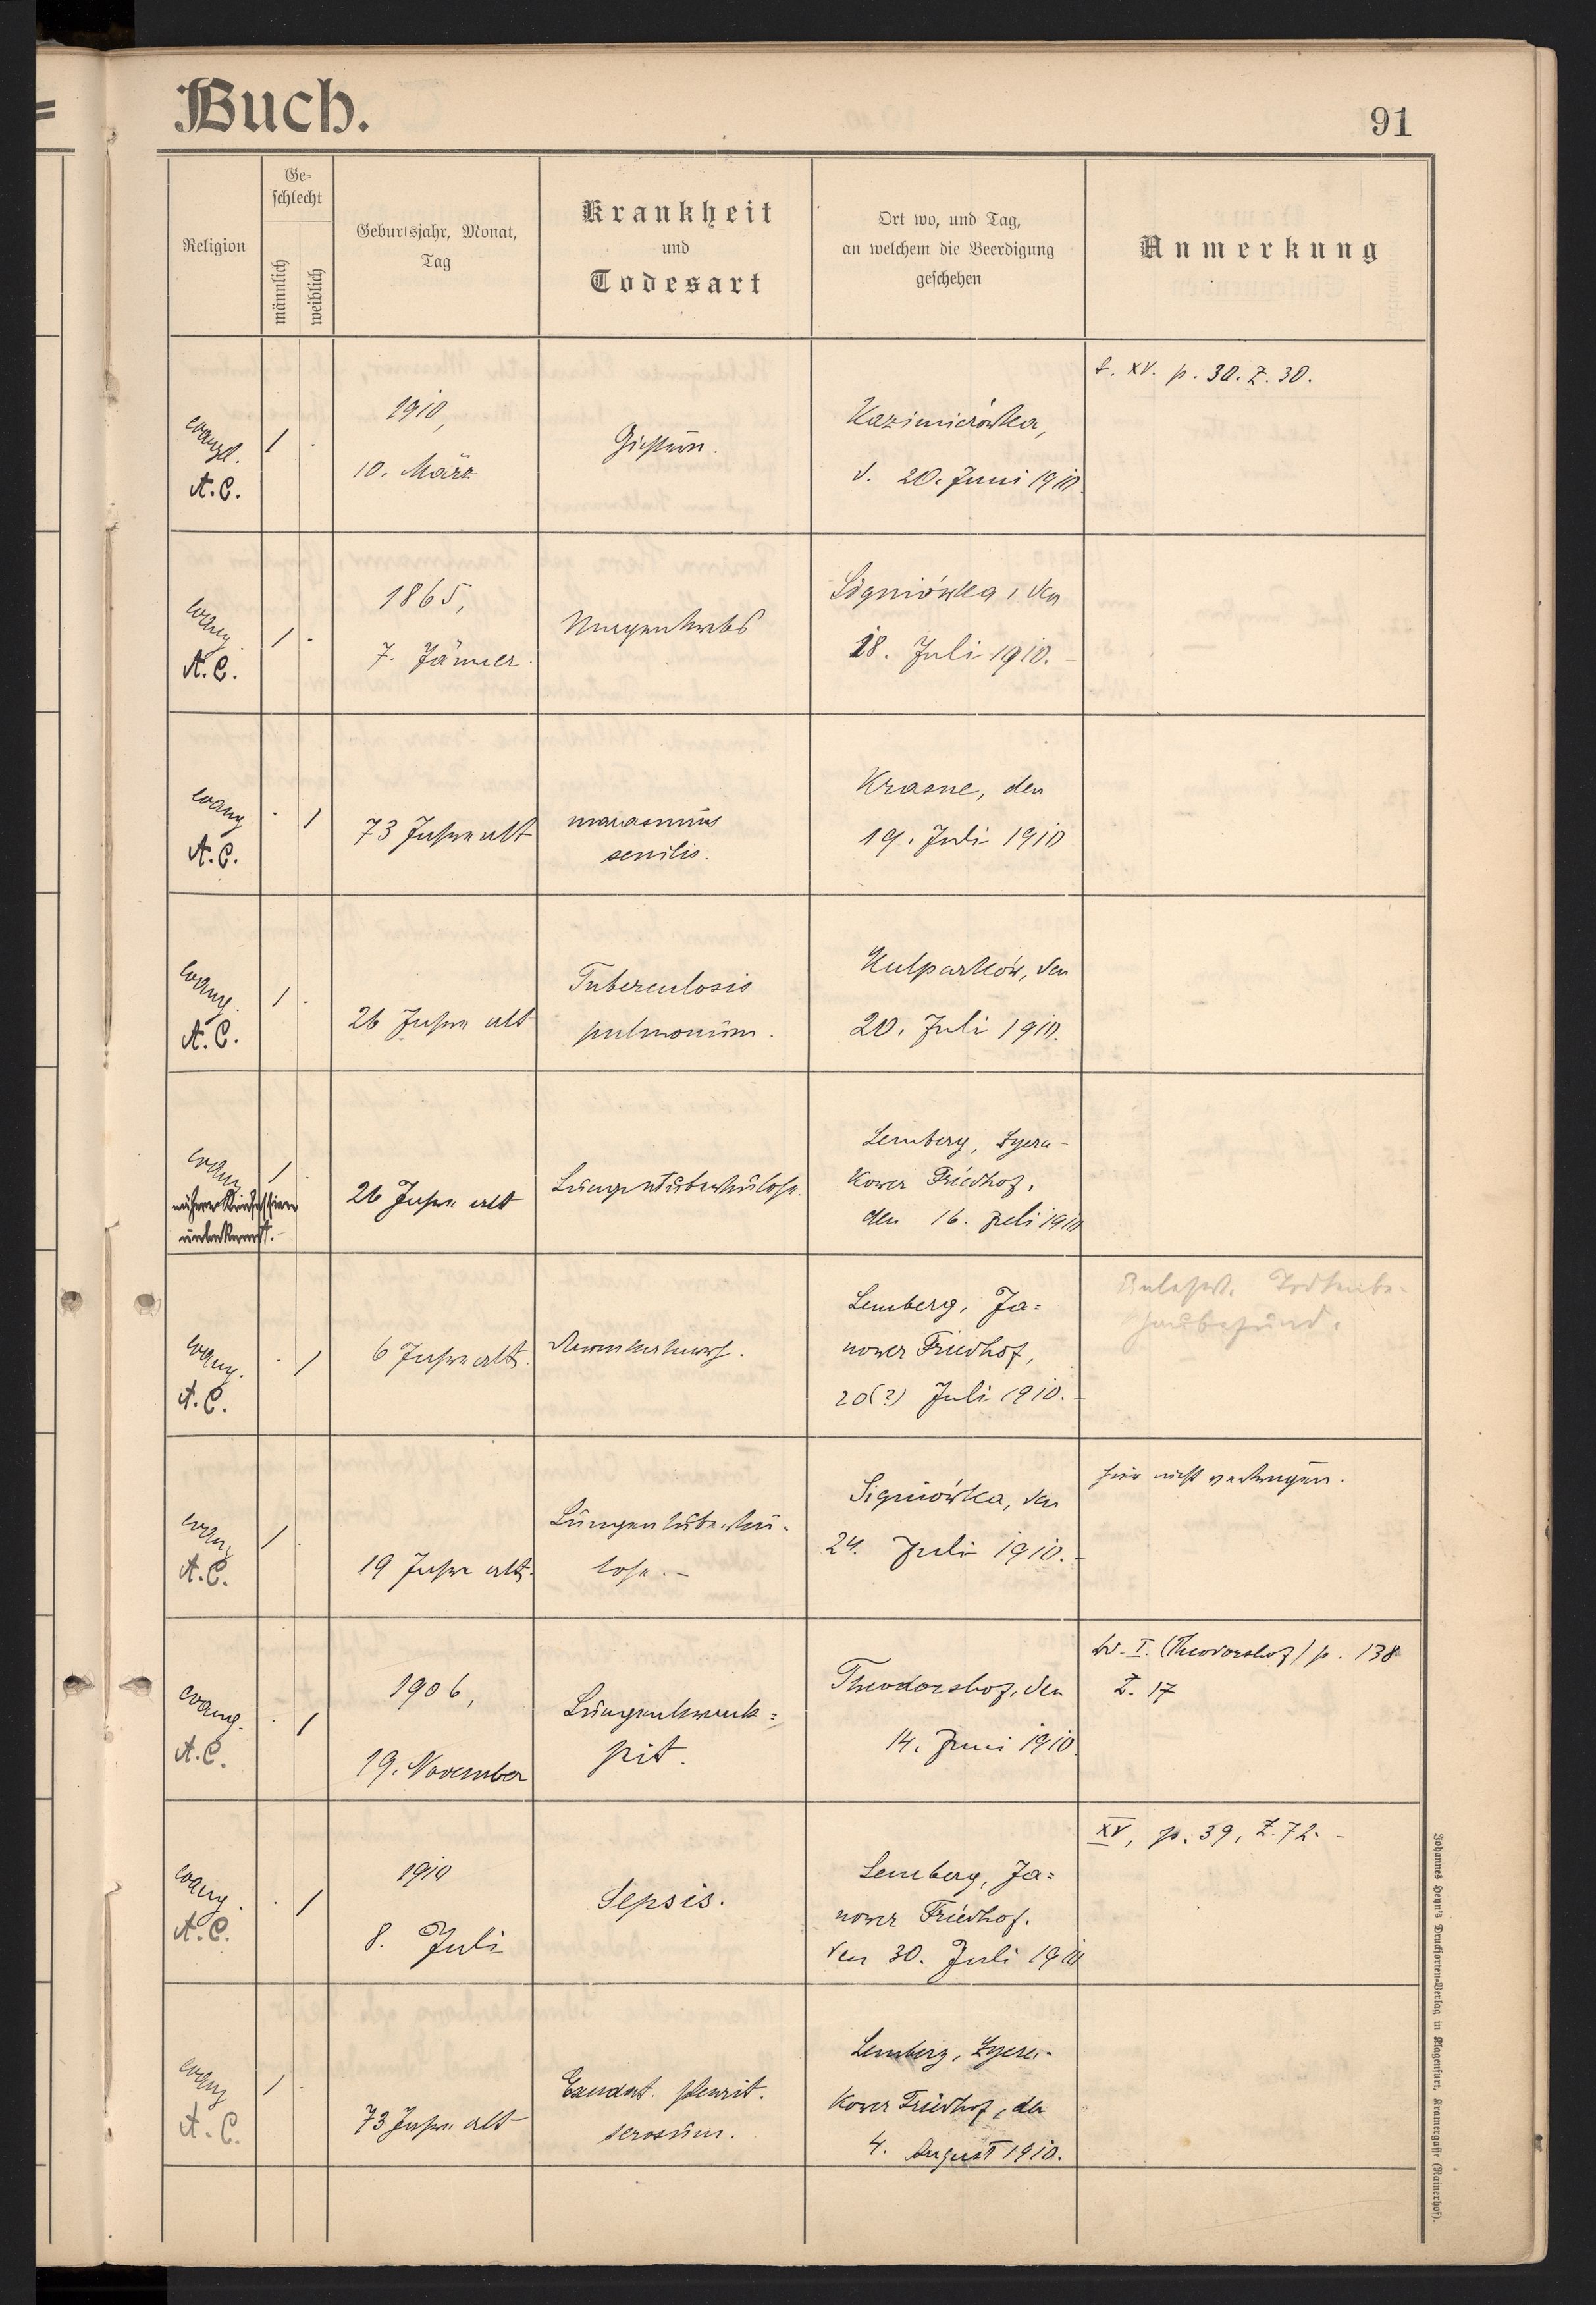 Buch.
91
Religion
Ge-
schlecht
männlich
weiblich
Geburtsjahr, Monat,
Tag
Krankheit
und
Todesart
Ort wo, und Tag,
an welchem die Beerdigung
geschehen
Anmerkung
evangel.
A.C.
1 .
1910,
10. März
Kazimierówka,
d. 20. Juni 1910.
XV. p. 30. Z. 30.
evang.
A.C.
1 .
1865,
7. Jänner
Magenkrebs
Signiówka, den
18. Juli 1910. -
evang
A.C.
. 1
73 Jahre alt
marasmus
senilis.
Krasne, den
19. Juli 1910
evang.
A.C.
1 .
26 Jahre alt
Tuberculosis
pulmonum.
Kulparków, den
20. Juli 1910.
evang
nähere Konfession
unbekannt.
1 .
26 Jahre alt
Lungentuberkulose.
Lemberg, Lycza-
kower Friedhof,
den 16. Juli 1910
evang.
A.C.
. 1
6 Jahre alt.
Darmkatarrh.
Lemberg, Ja=
nower Friedhof,
20(?) Juli 1910. -
evang
A.C.
1 .
19 Jahre alt.
Lungentuberku-
lose. -
Signiówka, den
24. Juli 1910. -
hier nicht
evang.
A.C.
. 1
1906,
19. November
Lungenkrank=
heit.
Theodorshof, den
14. Juni 1910.
I. (Theodorshof) p. 138
Z. 17
evang.
A.C.
. 1
1910
8. Juli
Sepsis.
Lemberg, Ja=
nower Friedhof.
den 30. Juli 1910
XV, p. 39, Z. 72. -
evang
A.C.
1 .
73 Jahre alt
Exudat. pleurit.
serosum.
Lemberg, Lycza-
kower Friedhof, den
4. August 1910.
Johannes Heyn's Drucksorten-Verlag in Klagenfurt, Kramergasse (Rainerhof).